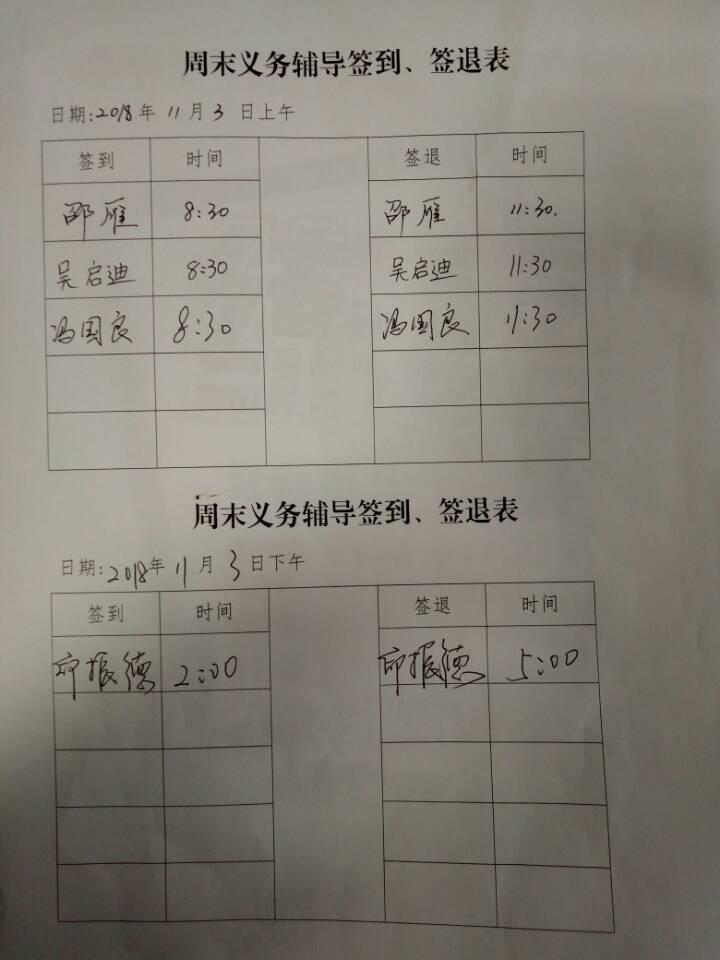 周末义务辅导签到、签退表
日期:2018年 11月 3 日上午
签到 时间 签退 时间
邵雁 8:30 邵雁 11:30.
吴启迪 8:30 吴启迪 11:30
冯国良 8:30 冯国良 11:30
周末义务辅导签到、签退表
日期:2018年 11月 3日下午
签到 时间 签退 时间
振德 2:00 振德 5:00